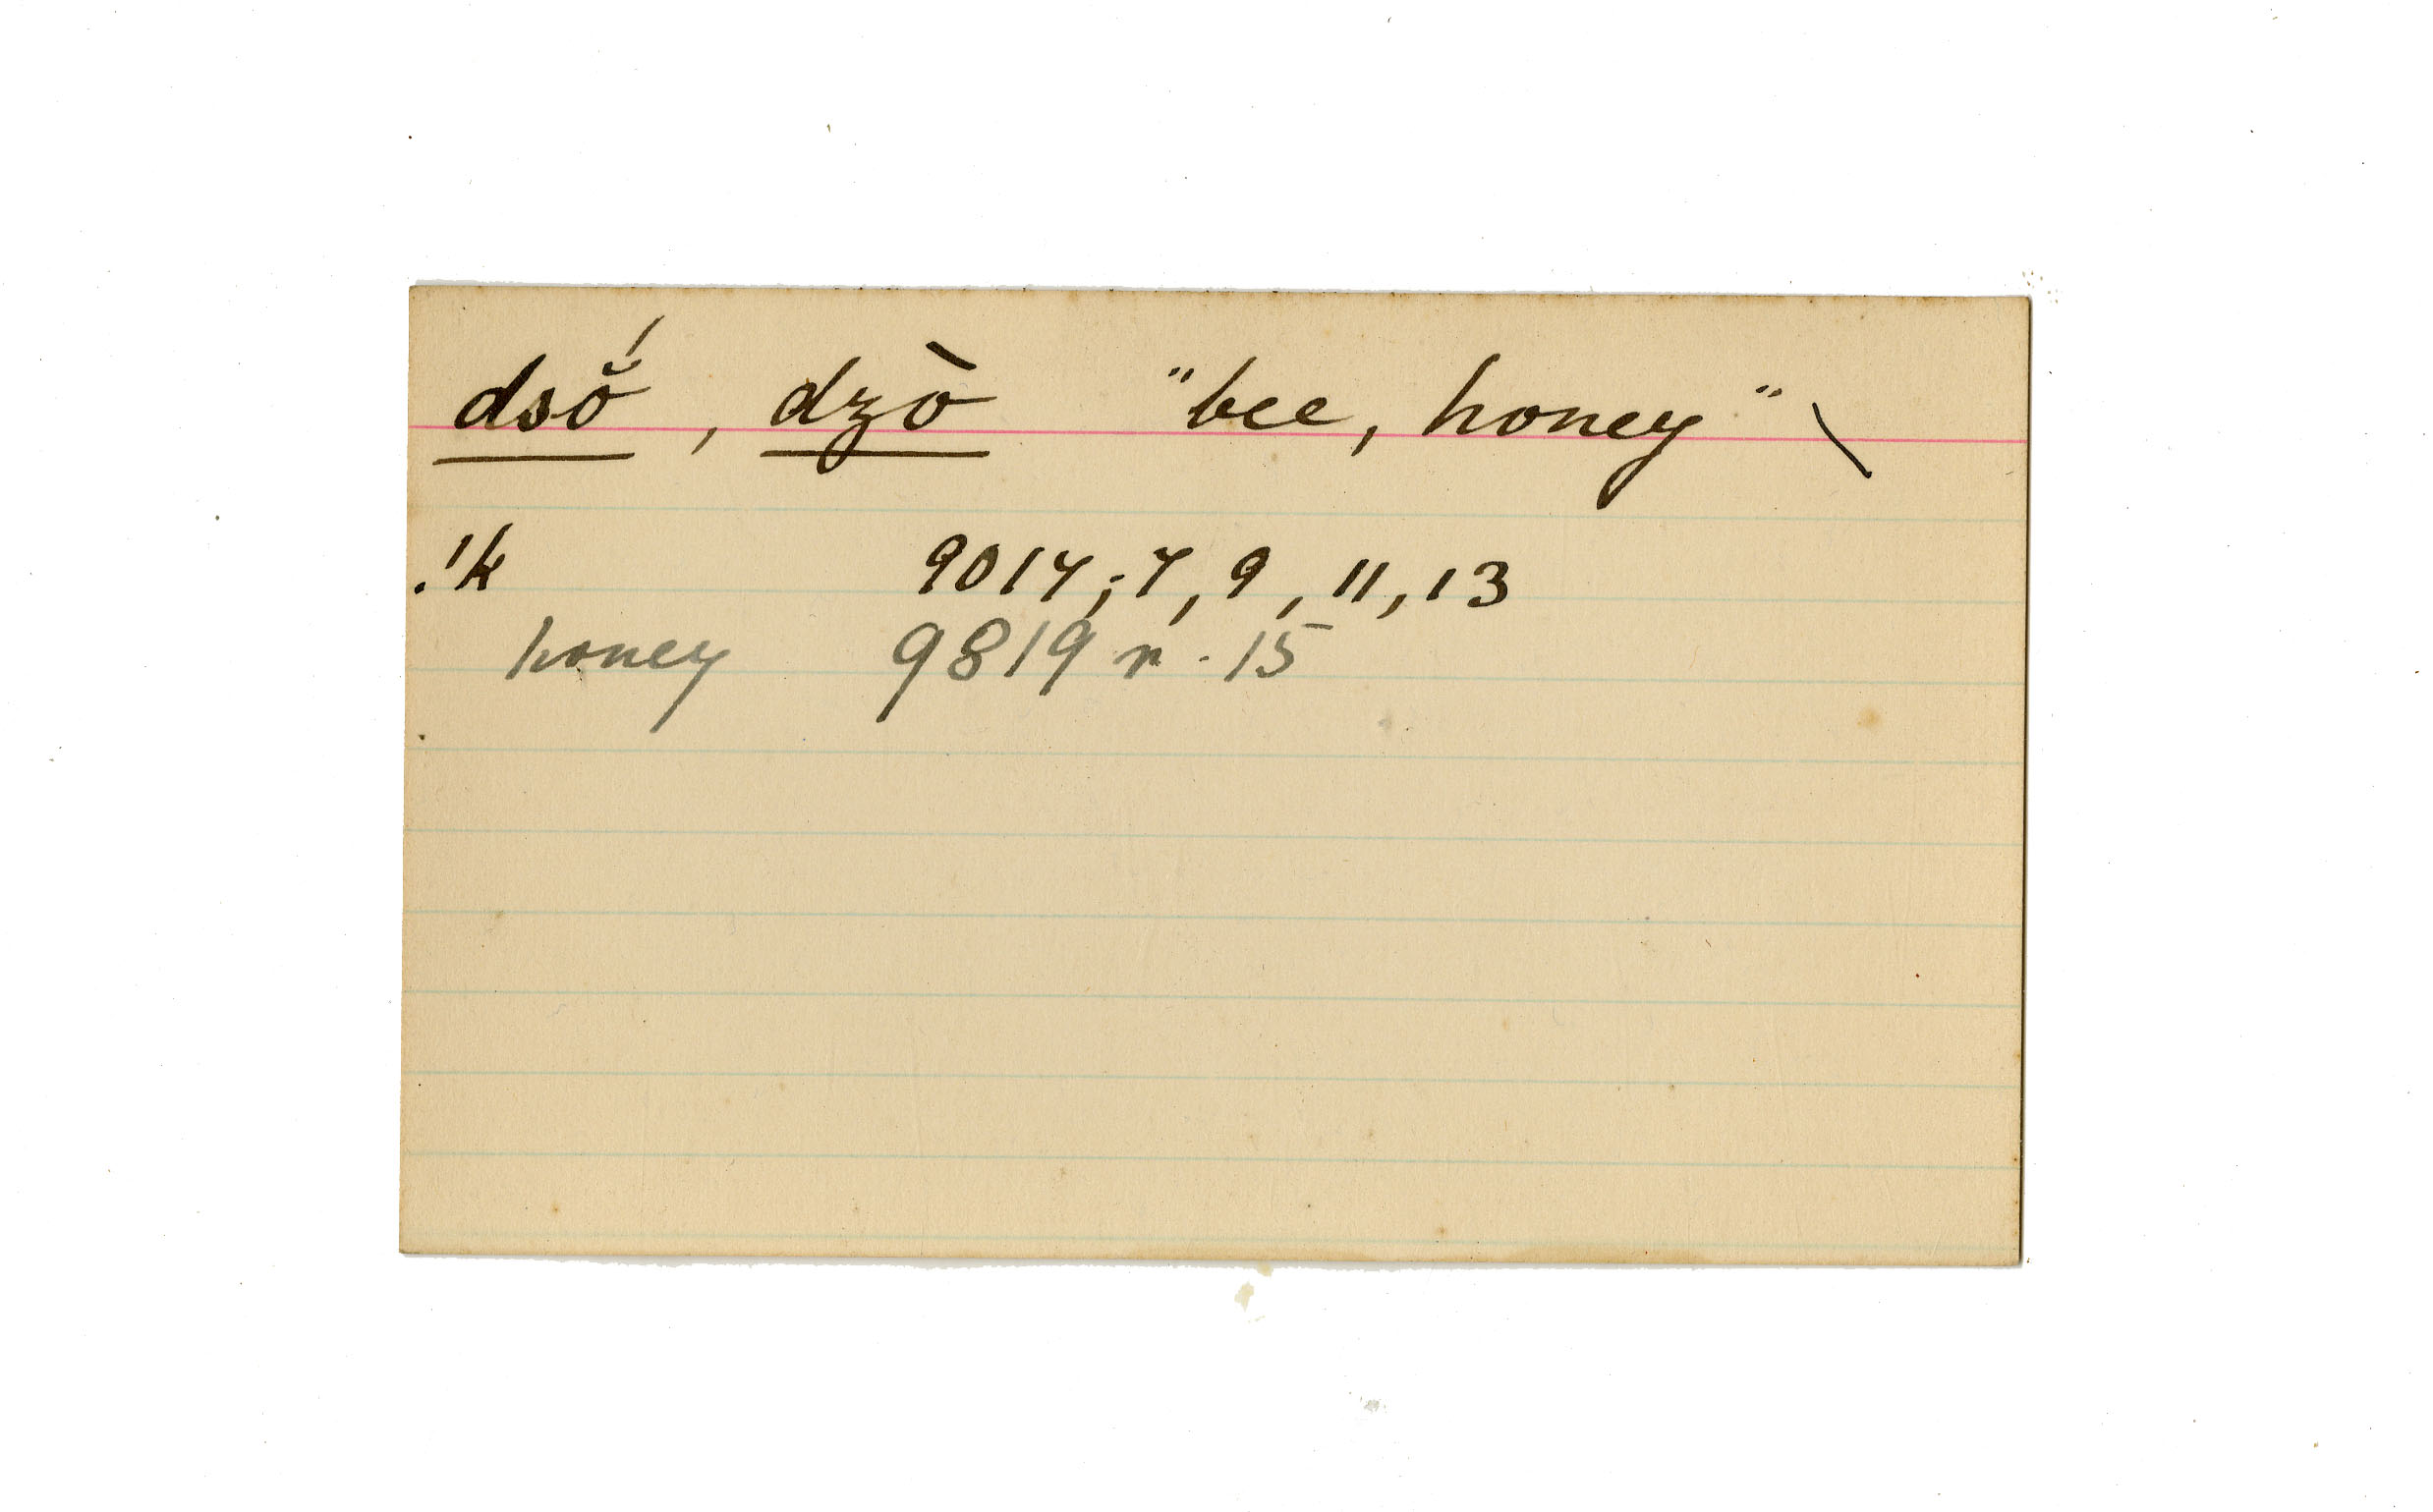 dsŏ́ , dzò "bee, honey" \
!k 9017; 7, 9, 11, 13
honey 9819 r. 15